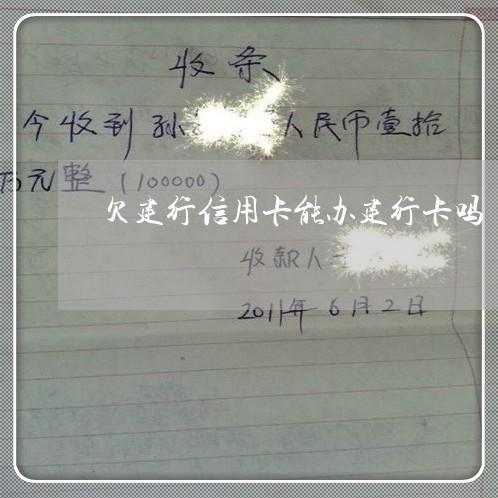 收条
今收到孙 人民币壹拾
万元整（100000）
欠建行信用卡能办建行卡吗
收款人
2011年6月2日